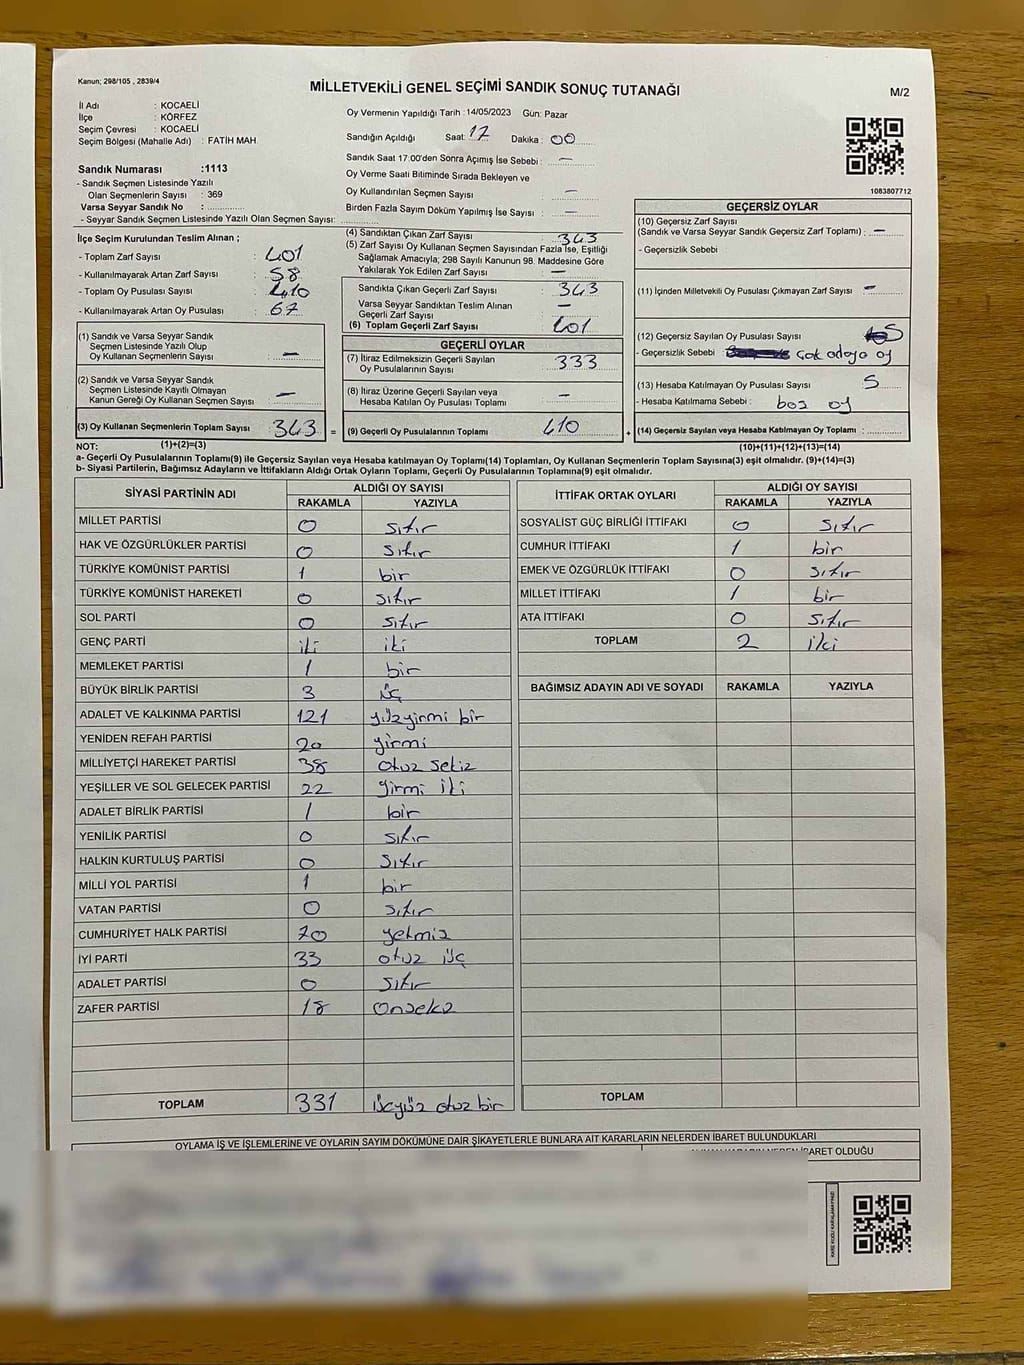 Kanun; 298/105 , 2839/4
MİLLETVEKİLİ GENEL SEÇİMİ SANDIK SONUÇ TUTANAĞI
M/2
İl Adı : KOCAELİ
İlçe : KÖRFEZ
Seçim Çevresi : KOCAELİ
Seçim Bölgesi (Mahalle Adı) : FATİH MAH
Sandık Numarası :1113
- Sandık Seçmen Listesinde Yazılı
Olan Seçmenlerin Sayısı : 369
Varsa Seyyar Sandık No :
- Seyyar Sandık Seçmen Listesinde Yazılı Olan Seçmen Sayısı:
Oy Vermenin Yapıldığı Tarih :14/05/2023 Gün: Pazar
Sandığın Açıldığı Saat: 17 Dakika : 00
Sandık Saat 17.00'den Sonra Açımış İse Sebebi : —
Oy Verme Saati Bitiminde Sırada Bekleyen ve
Oy Kullandırılan Seçmen Sayısı : —
Birden Fazla Sayım Döküm Yapılmış İse Sayısı : —
1083807712
İlçe Seçim Kurulundan Teslim Alınan ;
- Toplam Zarf Sayısı : 401
- Kullanılmayarak Artan Zarf Sayısı : 58
- Toplam Oy Pusulası Sayısı : 410
- Kullanılmayarak Artan Oy Pusulası : 67
(1) Sandık ve Varsa Seyyar Sandık
Seçmen Listesinde Yazılı Olup
Oy Kullanan Seçmenlerin Sayısı : —
(2) Sandık ve Varsa Seyyar Sandık
Seçmen Listesinde Kayıtlı Olmayan
Kanun Gereği Oy Kullanan Seçmen Sayısı : —
(3) Oy Kullanan Seçmenlerin Toplam Sayısı : 343 =
(4) Sandıktan Çıkan Zarf Sayısı : 343
(5) Zarf Sayısı Oy Kullanan Seçmen Sayısından Fazla İse, Eşitliği
Sağlamak Amacıyla; 298 Sayılı Kanunun 98. Maddesine Göre
Yakılarak Yok Edilen Zarf Sayısı : —
Sandıkta Çıkan Geçerli Zarf Sayısı : 343
Varsa Seyyar Sandıktan Teslim Alınan
Geçerli Zarf Sayısı : —
(6) Toplam Geçerli Zarf Sayısı : 401
GEÇERLİ OYLAR
(7) İtiraz Edilmeksizin Geçerli Sayılan
Oy Pusulalarının Sayısı : 333
(8) İtiraz Üzerine Geçerli Sayılan veya
Hesaba Katılan Oy Pusulası Toplamı : —
(9) Geçerli Oy Pusulalarının Toplamı : 410 +
GEÇERSİZ OYLAR
(10) Geçersiz Zarf Sayısı
(Sandık ve Varsa Seyyar Sandık Geçersiz Zarf Toplamı) : —
- Geçersizlik Sebebi
(11) İçinden Milletvekili Oy Pusulası Çıkmayan Zarf Sayısı : —
(12) Geçersiz Sayılan Oy Pusulası Sayısı : 5
- Geçersizlik Sebebi : çok adaya oy
(13) Hesaba Katılmayan Oy Pusulası Sayısı : 5
- Hesaba Katılmama Sebebi : boş oy
(14) Geçersiz Sayılan veya Hesaba Katılmayan Oy Toplamı :
NOT: (1)+(2)=(3) (10)+(11)+(12)+(13)=(14)
a- Geçerli Oy Pusulalarının Toplamı(9) ile Geçersiz Sayılan veya Hesaba katılmayan Oy Toplamı(14) Toplamları, Oy Kullanan Seçmenlerin Toplam Sayısına(3) eşit olmalıdır. (9)+(14)=(3)
b- Siyasi Partilerin, Bağımsız Adayların ve İttifakların Aldığı Ortak Oyların Toplamı, Geçerli Oy Pusulalarının Toplamına(9) eşit olmalıdır.
SİYASİ PARTİNİN ADI ALDIĞI OY SAYISI
RAKAMLA YAZIYLA
MİLLET PARTİSİ 0 sıfır
HAK VE ÖZGÜRLÜKLER PARTİSİ 0 sıfır
TÜRKİYE KOMÜNİST PARTİSİ 1 bir
TÜRKİYE KOMÜNİST HAREKETİ 0 sıfır
SOL PARTİ 0 sıfır
GENÇ PARTİ iki iki
MEMLEKET PARTİSİ 1 bir
BÜYÜK BİRLİK PARTİSİ 3 üç
ADALET VE KALKINMA PARTİSİ 121 yüzyirmi bir
YENİDEN REFAH PARTİSİ 20 yirmi
MİLLİYETÇİ HAREKET PARTİSİ 38 otuz sekiz
YEŞİLLER VE SOL GELECEK PARTİSİ 22 yirmi iki
ADALET BİRLİK PARTİSİ 1 bir
YENİLİK PARTİSİ 0 sıfır
HALKIN KURTULUŞ PARTİSİ 0 sıfır
MİLLİ YOL PARTİSİ 1 bir
VATAN PARTİSİ 0 sıfır
CUMHURİYET HALK PARTİSİ 70 yetmiş
İYİ PARTİ 33 otuz üç
ADALET PARTİSİ 0 sıfır
ZAFER PARTİSİ 18 onsekiz
TOPLAM 331 üçyüz otuz bir
İTTİFAK ORTAK OYLARI ALDIĞI OY SAYISI
RAKAMLA YAZIYLA
SOSYALİST GÜÇ BİRLİĞİ İTTİFAKI 0 sıfır
CUMHUR İTTİFAKI 1 bir
EMEK VE ÖZGÜRLÜK İTTİFAKI 0 sıfır
MİLLET İTTİFAKI 1 bir
ATA İTTİFAKI 0 sıfır
TOPLAM 2 iki
BAĞIMSIZ ADAYIN ADI VE SOYADI RAKAMLA YAZIYLA
TOPLAM
OYLAMA İŞ VE İŞLEMLERİNE VE OYLARIN SAYIM DÖKÜMÜNE DAİR ŞİKAYETLERLE BUNLARA AİT KARARLARIN NELERDEN İBARET BULUNDUKLARI
İBARET OLDUĞU